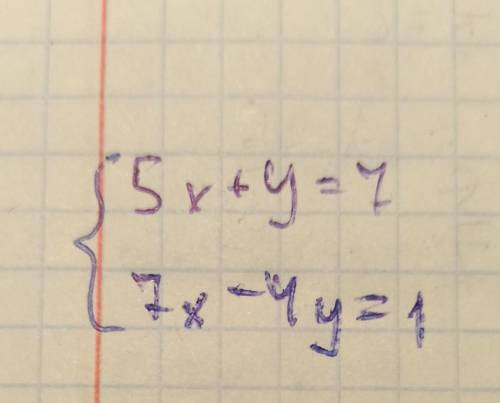 5x+y=7
7x-4y=1